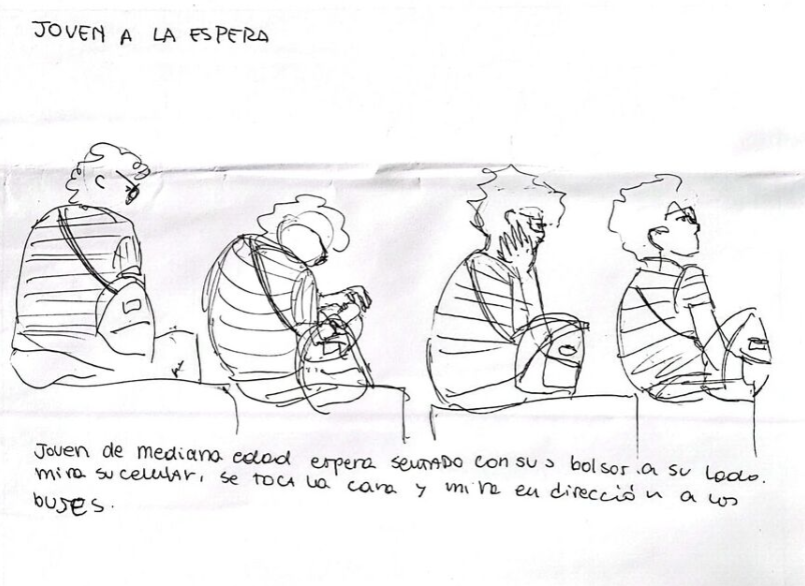 JOVEN A LA ESPERA
Joven de mediana edad espera sentado con sus bolsos a su lado.
mira su celular, se toca la cara y mira en dirección a los
buses.